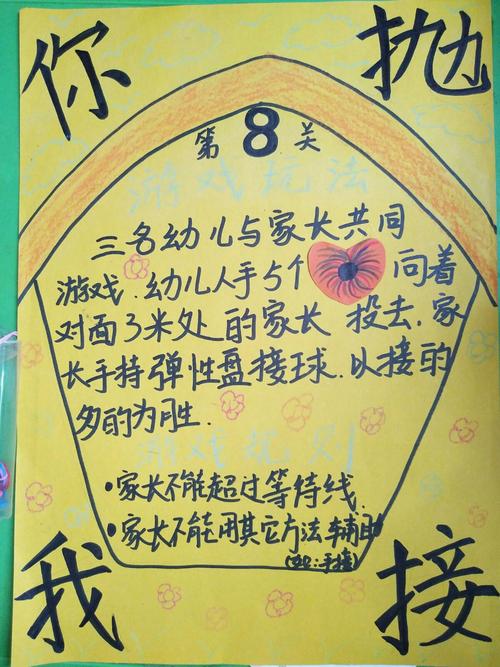 你抛
第8关
游戏玩法
三名幼儿与家长共同
游戏.幼儿人手5个 向着
对面3米处的家长 投去,家
长手持弹性盘接球.以接的
多的为胜.
游戏规则
·家长不能超过等待线.
·家长不能用其它方法辅助
(如:手接)
我接